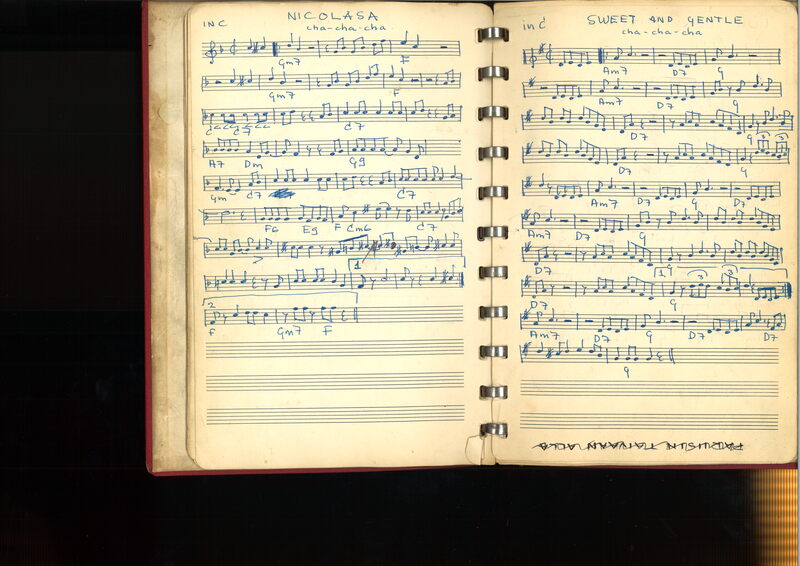 IN C NICOLASA
cha-cha-cha
Gm7 F
Gm7 F
C C7 C7
A7 Dm G9
Gm C7 C7
F6 E9 F Cm6 C7
1
2
F Gm7 F
in C SWEET AND GENTLE
cha-cha-cha
Am7 D7 G
Am7 D7 G
D7 G 3 3
D7 G
Am7 D7 G D7
Am7 D7 G
D7 G
1 3 3
D7
Am7 D7 G D7 D7
G
PARIISIN TAIVAAN ALLA